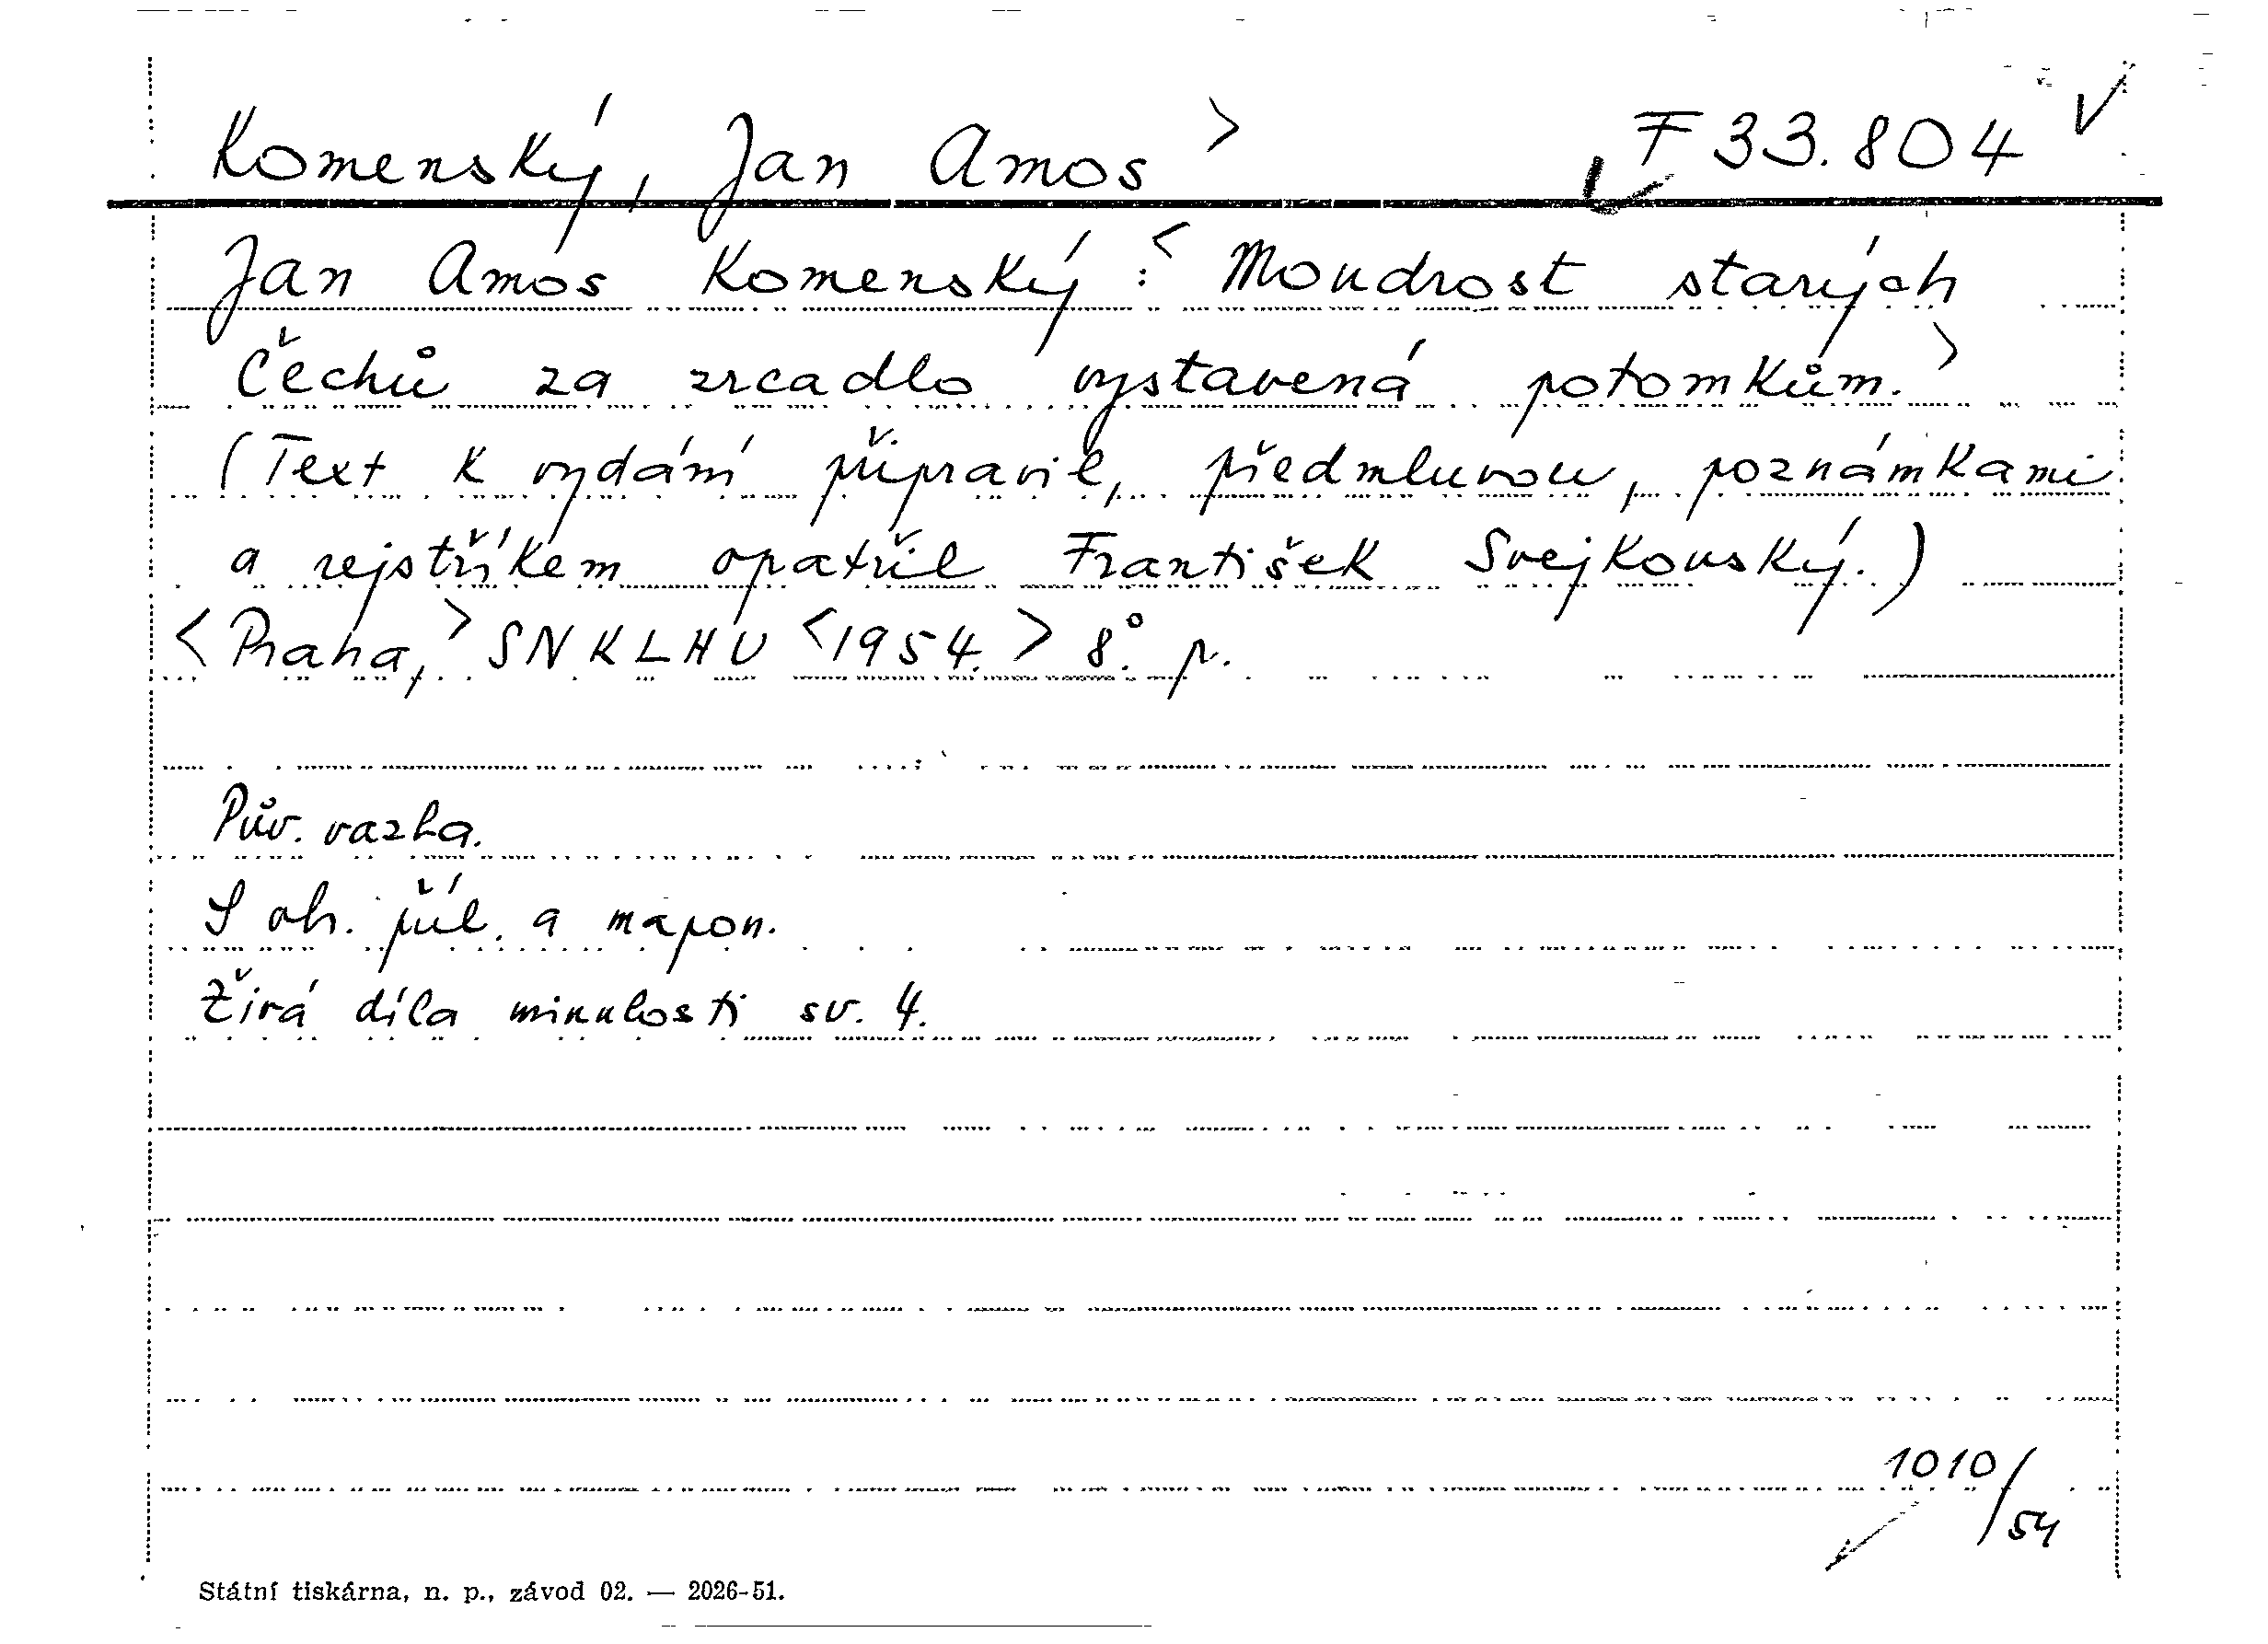 Komenský, Jan Amos > F 33.804 V
Jan Amos Komenský: < Moudrost starých
Čechů za zrcadlo vystavená potomkům. >
(Text k vydání připravil, předmluvou, poznámkami
a rejstříkem opatřil František Svejkovský.)
<Praha,> SNKLHU <1954.> 8°. p.
Pův. vazba.
S ob. příl. a mapou.
Živá díla minulosti sv. 4.
1010/54
Státní tiskárna, n. p., závod 02. — 2026-51.